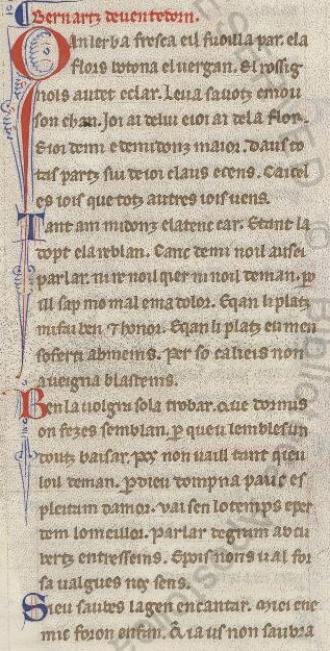 Bernartz deuentedorn.
Qan lerba fresca eil fuoilla par. ela
flors botona el uergan. El rossig
nols autet e clar. Leua sauotz e mou
son chan. Joi ai delui e ioi ai dela flor.
E ioi demi e demidonz maior. Daus to
tas partz sui de ioi claus e cens. Cai cel
es iois que totz autres iois uens.
Tant am midonz e la tenc car. E tant la
dopt e la reblan. Canc de mi noil ausei
parlar. ni re noil quer ni noil deman. p
ill sap mo mal e ma dolor. E qan li platz
mi fai ben 7 honor. E qan li platz eu men
sofert ab meins. per so ca lieis non
aueigna blastems.
Ben la uolgra sola trobar. que dormis
on fezes semblan. p queu lembles un
doutz baisar. pos non uaill tant qieu
loil deman. p dieu dompna pauc es
pleitam damor. uai sen lo temps e per
dem lo meillor. parlar degram ab cu
bertz entresseins. E pois nons ual for
sa ualgues nos gens.
Sieu saubes la gen encantar. Miei ene
mic foron enfan. Qe ia us non saubra